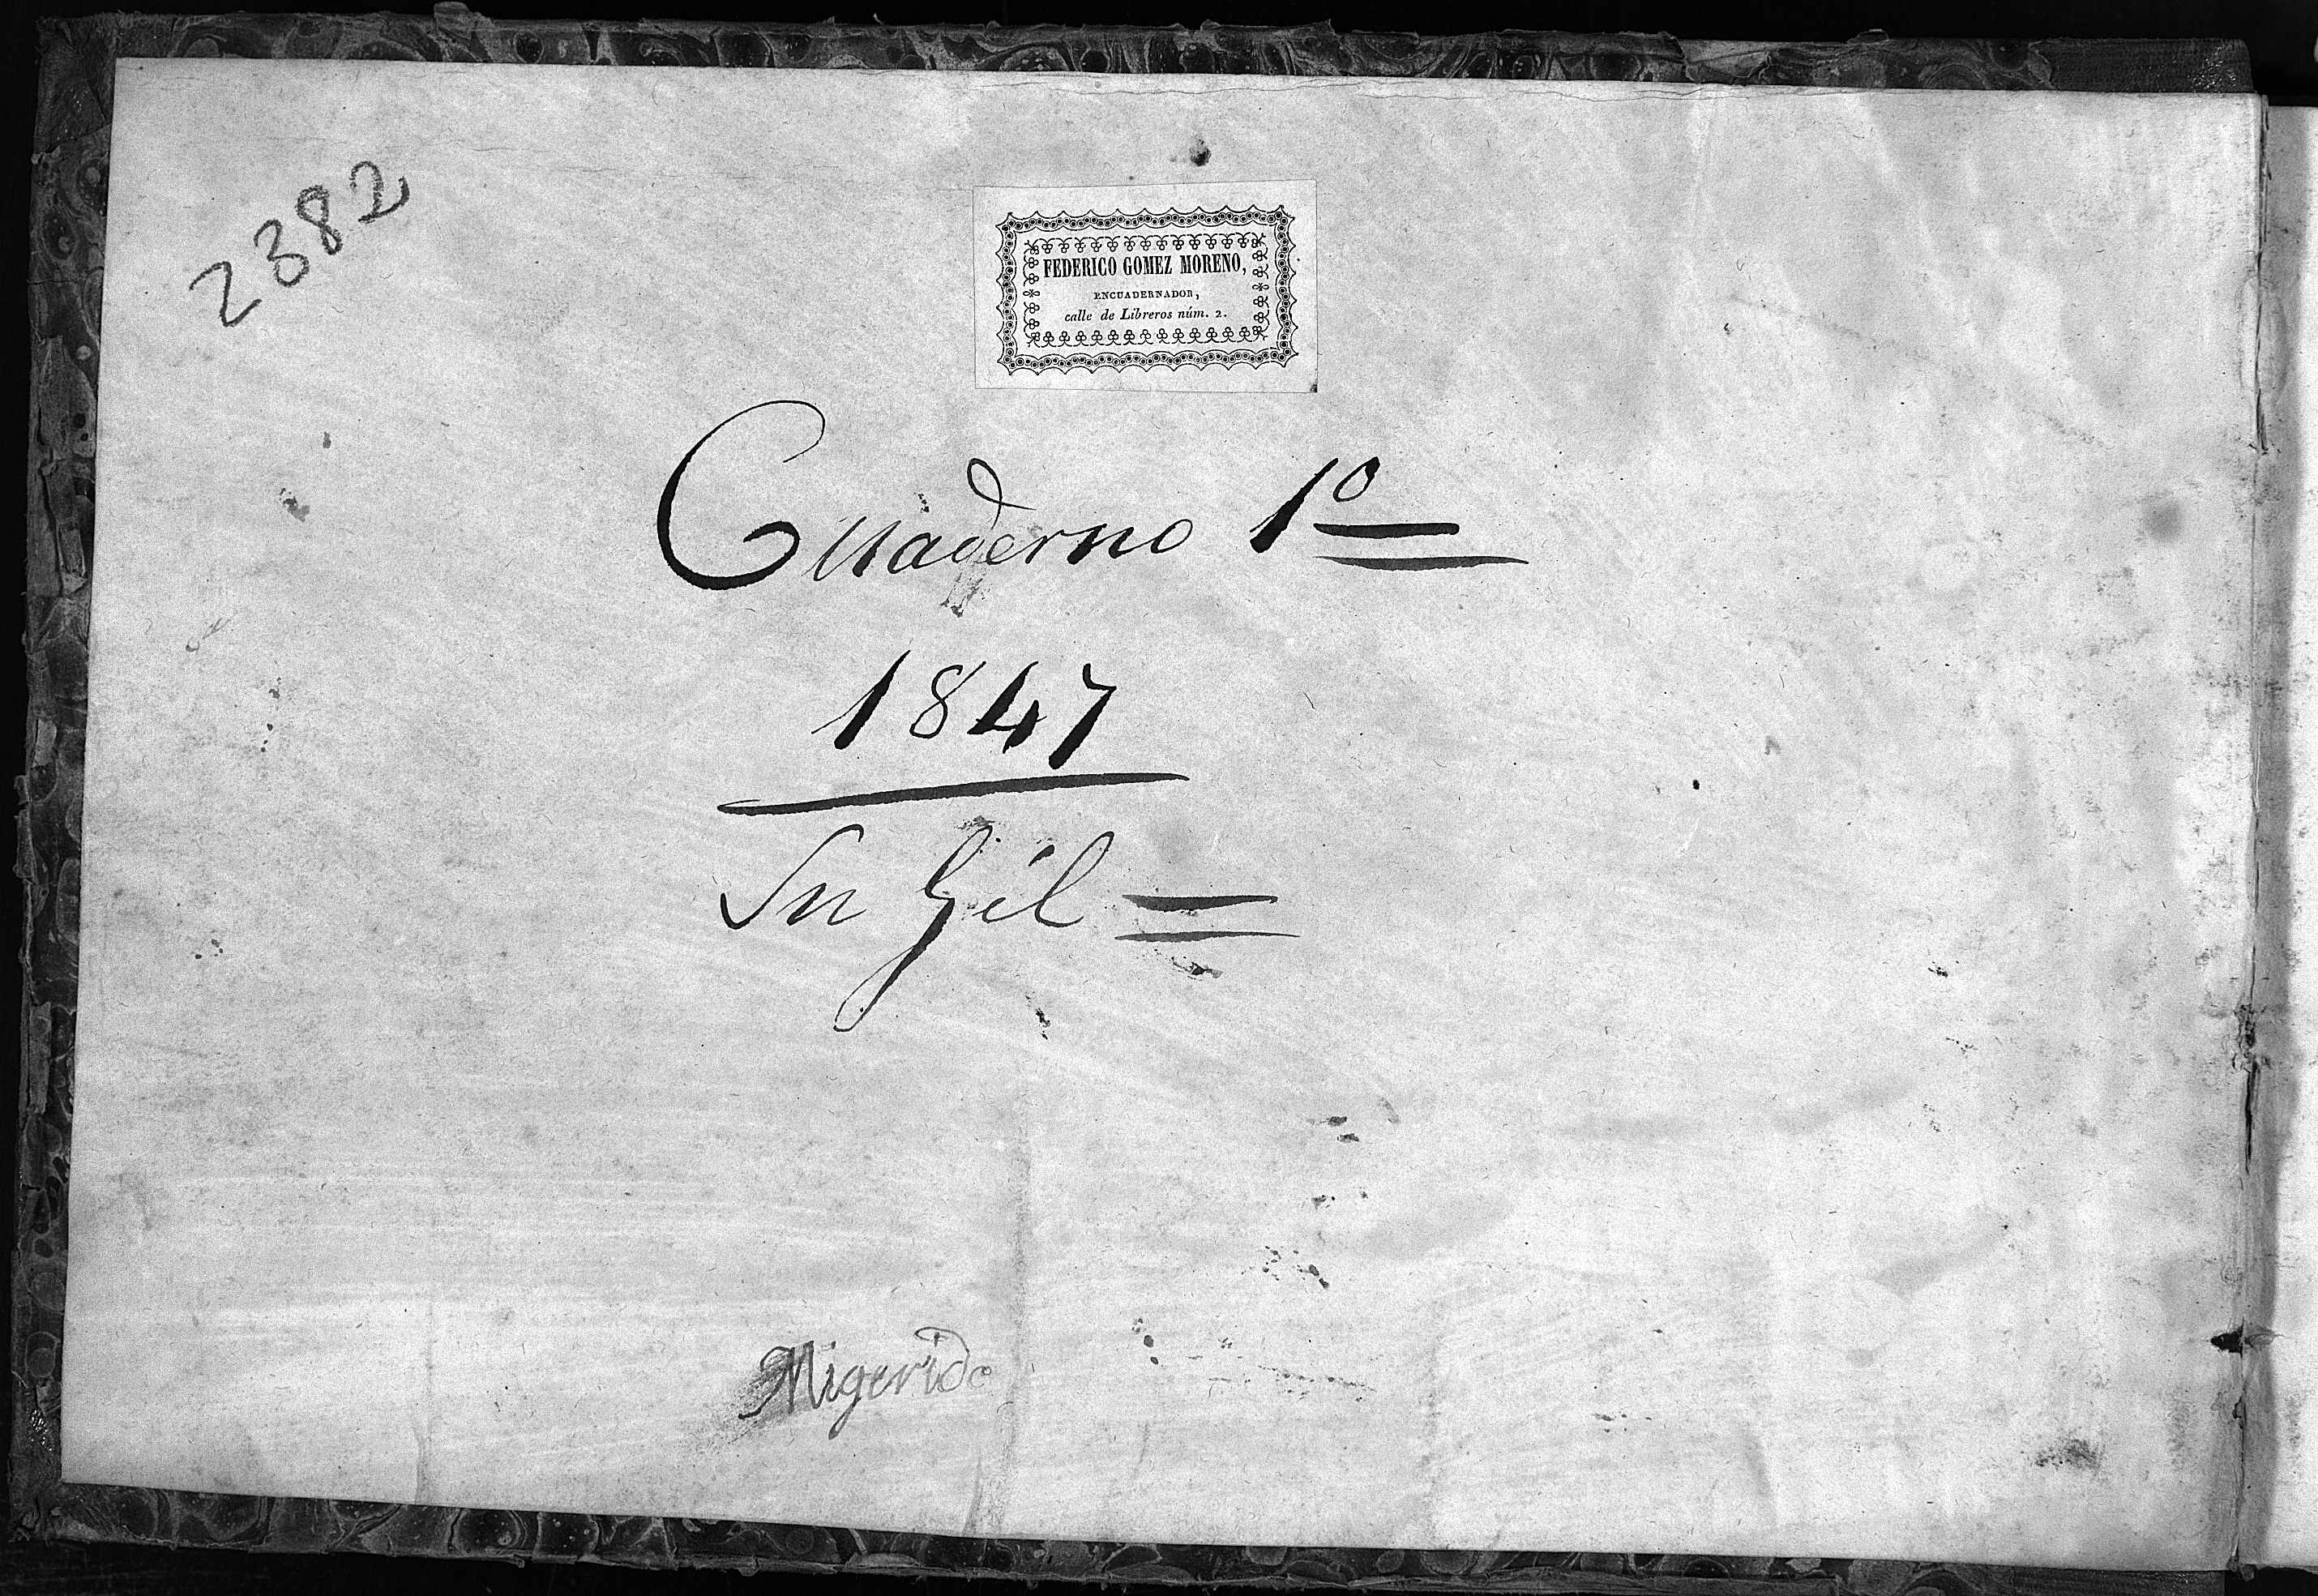 2382
FEDERICO GOMEZ MORENO,
ENCUADERNADOR,
calle de Libreros núm. 2.
Cuaderno 1º
1847
Sn Gil
Migerido